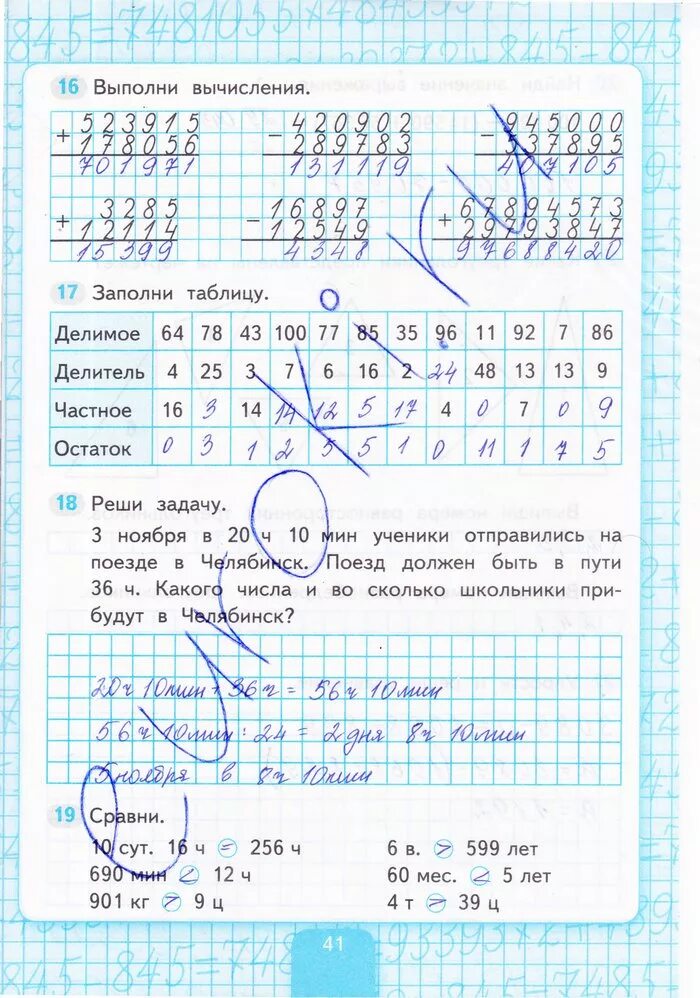 16 Выполни вычисления.
+ 523915 − 420902 − 945000
178056 289783 537895
701971 131119 407105
+ 3285 − 16897 + 67894573
12114 12549 29793847
15399 4348 97688420
17 Заполни таблицу.
Делимое 64 78 43 100 77 85 35 96 11 92 7 86
Делитель 4 25 3 7 6 16 2 24 48 13 13 9
Частное 16 3 14 14 12 5 17 4 0 7 0 9
Остаток 0 3 1 2 5 5 1 0 11 1 7 5
18 Реши задачу.
3 ноября в 20 ч 10 мин ученики отправились на
поезде в Челябинск. Поезд должен быть в пути
36 ч. Какого числа и во сколько школьники при-
будут в Челябинск?
20ч 10мин + 36ч = 56ч 10мин
56ч 10мин : 24 = 2дня 8ч 10мин
5 ноября в 8ч 10мин
19 Сравни.
10 сут. 16 ч = 256 ч 6 в. > 599 лет
690 мин < 12 ч 60 мес. < 5 лет
901 кг > 9 ц 4 т > 39 ц
41